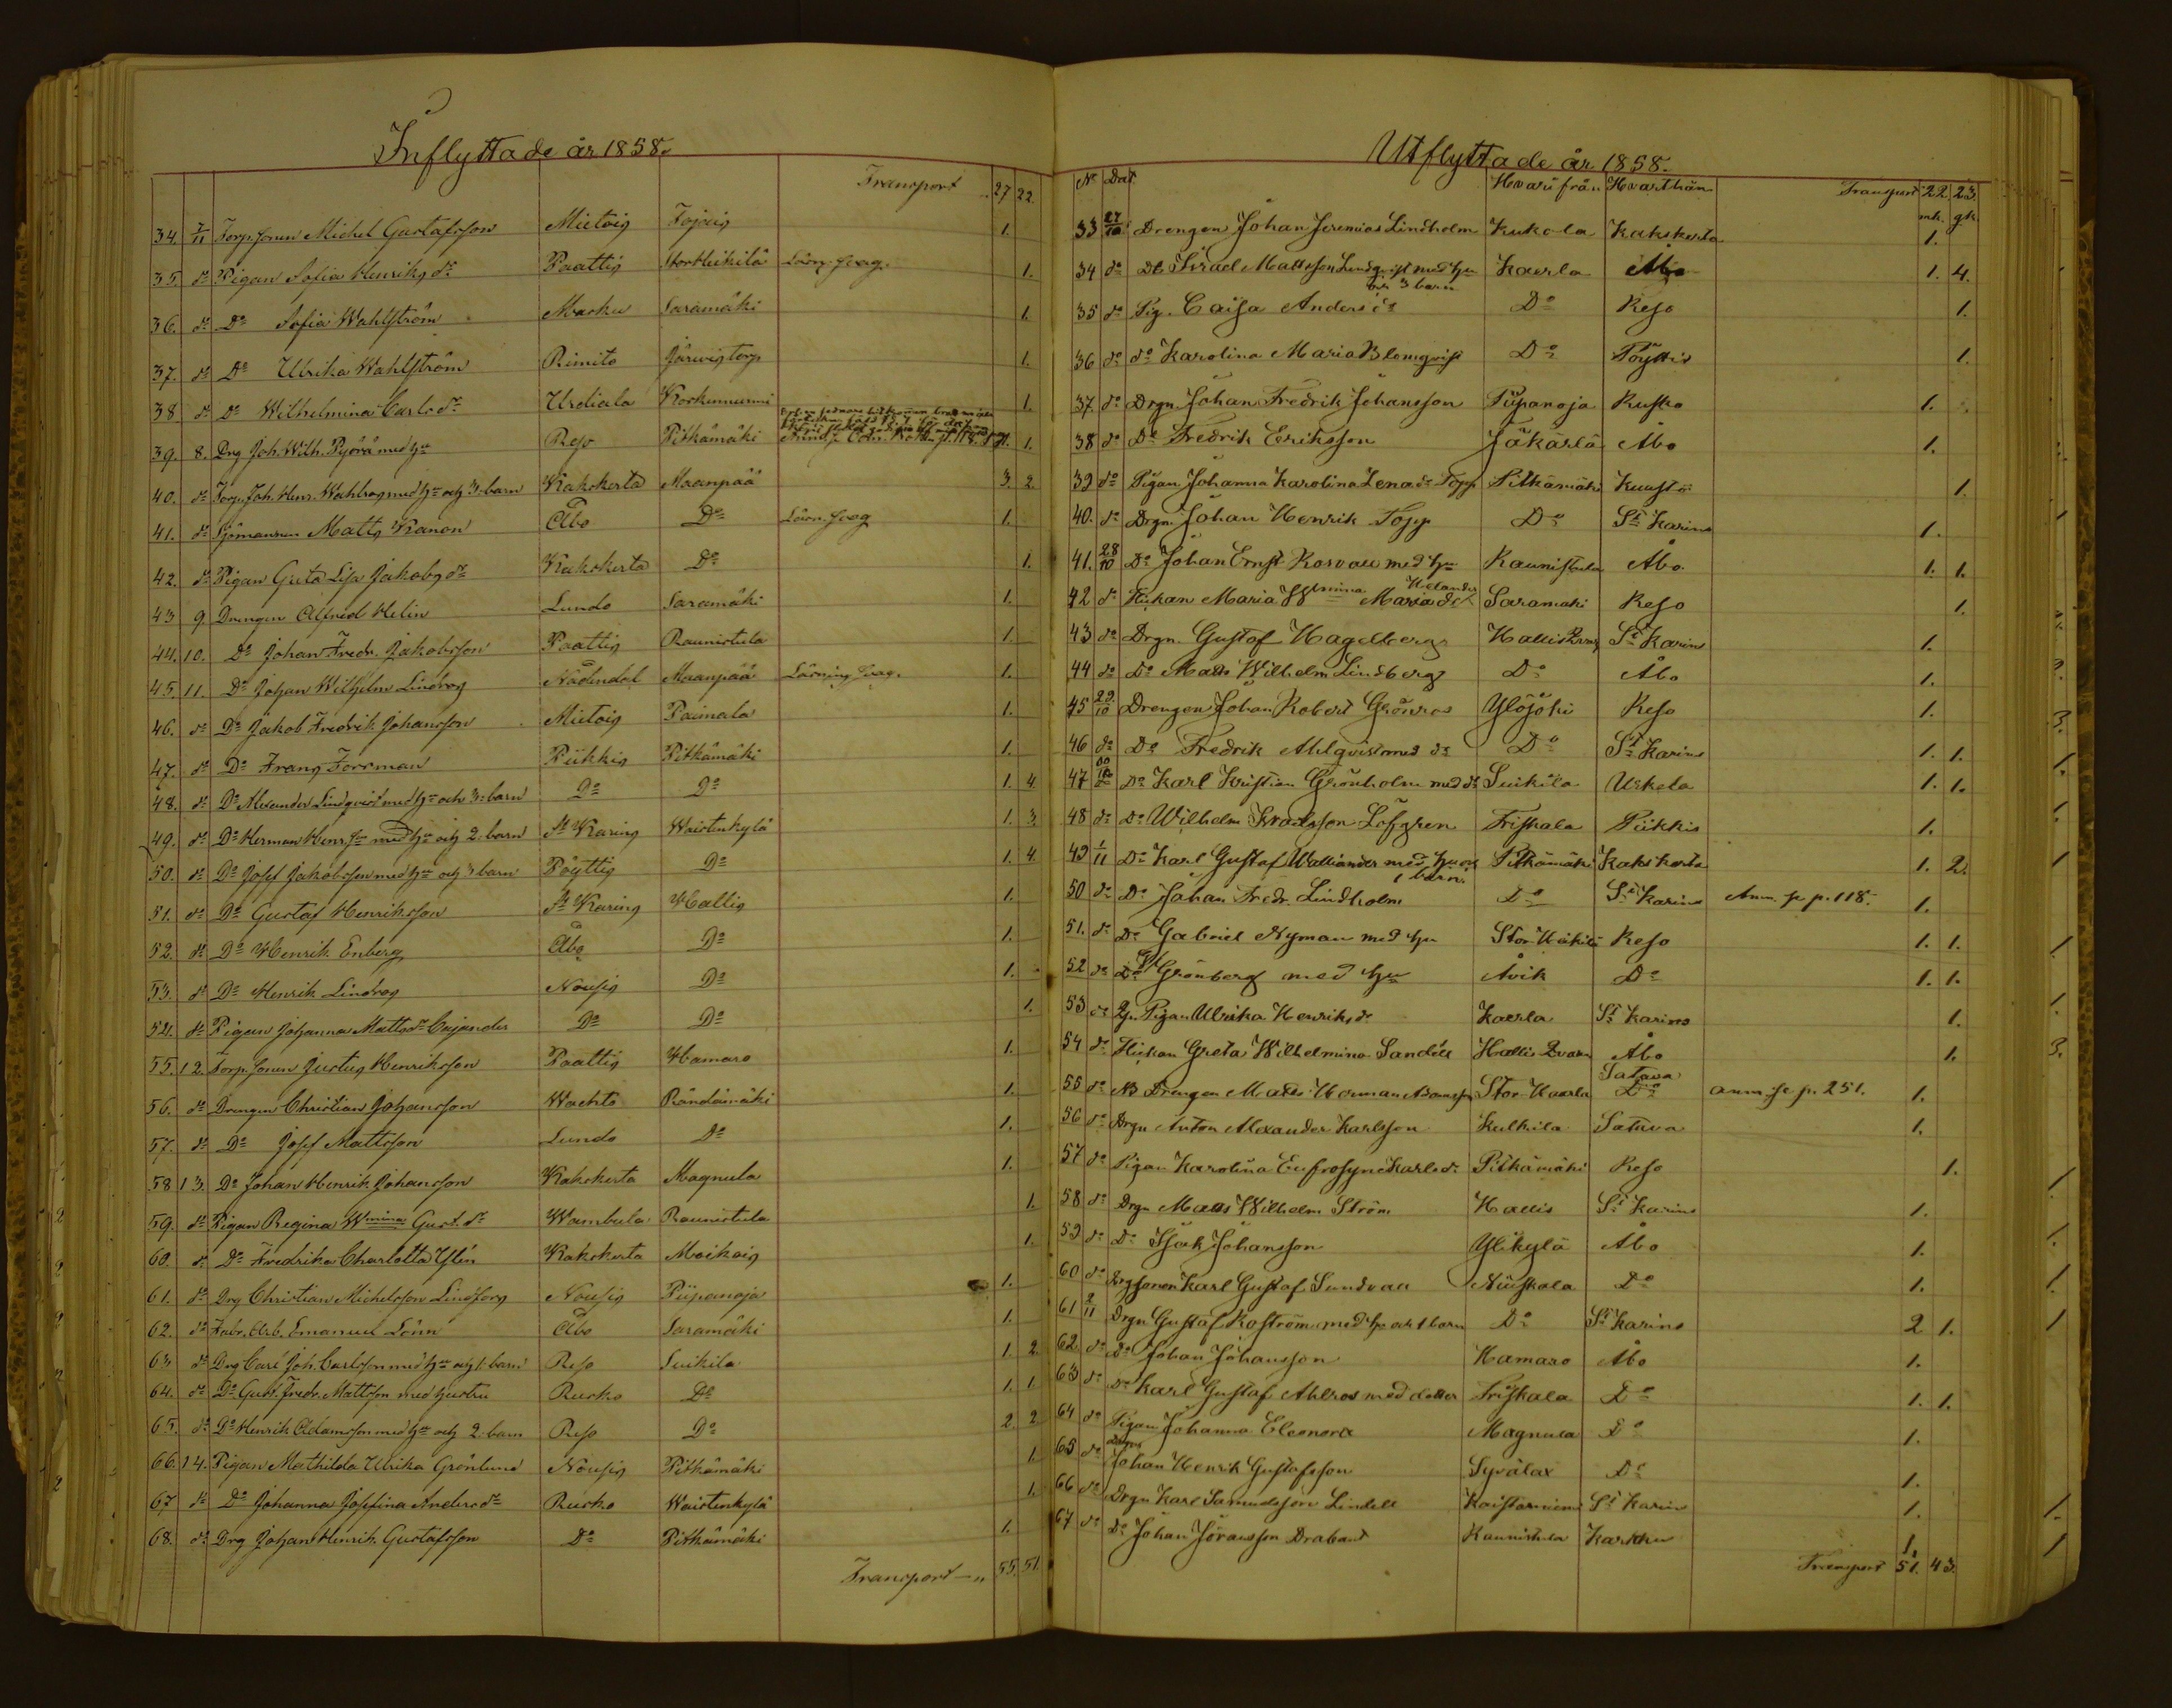 Inflyttade år 1858.
Transport 27 22
34. 7/11 Torp. sonen Michel Gustafsson Mietois 1.
35. do Pigan Sofia Henriksdr Paattis Storheikilä 1.
36. do Do Sofia Wahlström Masku Saramäki 1.
37. do Do Ulrika Wahlström Rimito 1.
38. do Do Wilhelmina Carlsdr Urdiala 1.
39. 8. Drg Joh. Wilh. Pyörä med hu Reso Pitkämäki 1. 1.
40. do Torp. Joh. Henr. med hu och 3 barn Kakskerta Maanpää 3. 2.
41. do Sjömannen Matts Åbo Do 1.
42. do Pigan Greta Lisa Jakobsdr Kakskerta Do 1.
43 9. Drengen Alfred Helin Lundo Saramäki 1.
44. 10. Do Johan Fredr. Jakobsson Paattis Raunistula 1.
45. 11. Do Johan Wilhelm Lindroos Nådendal Maanpää 1.
46. do Do Jakob Fredrik Johansson Mietois Paimala 1.
47. do Do Frans Forsman Piikkis Pitkämäki 1.
48. do Do Alexander Lindqvist med hu och 3 barn Do Do 1. 4.
49. do Do Herman Henr.son med hu och 2 barn St Karins Waistenkylä 1. 3.
50. do Do Josef Jakobsson med hu och 3 barn Pöyttis Do 1. 4.
51. do Do Gustaf Henriksson St Karins Hallis 1.
52. do Do Henrik Enberg Åbo Do 1.
53. do Do Henrik Lindroos Nousis Do 1.
54. do Pigan Johanna Mattsdr Cajander Do Do 1.
55. 12. Torp. sonen Justus Henriksson Paattis Hamaro 1.
56. do Drengen Christian Johansson Wachto Räntämäki 1.
57. do Do Josef Mattsson Lundo Do 1.
58 13. Do Johan Henrik Johansson Kakskerta Magnula 1.
59. do Pigan Regina Wmina Gust.dr Wambula Raunistula 1.
60. do Do Fredrika Charlotta Ylén Kakskerta Moikois 1.
61. do Drg Christian Michelsson Lindfors Nousis Piipanoja 1.
62. do Fabr. Arb. Emanuel Lönn Åbo Saramäki 1.
63 do Drg Carl Joh. Carlsson med hu och 1 barn Reso Suikila 1. 2.
64. do Do Gust. Fredr. Mattsson med hustru Rusko Do 1. 1.
65. do Do Henrik Adamsson med hu och 2 barn Reso Do 2. 2
66. 14. Pigan Mathilda Ulrika Grönlund Nousis Pitkämäki 1.
67 do Do Johanna Josefina Andersdr Rusko Waistenkylä 1.
68. do Drg Johan Henrik Gustafsson Do Pitkämäki 1.
Transport 55. 51.
Utflyttade år 1858.
No Dat. Hvarifrån Hvarthän Transport 22. 23.
mk. qk.
33 27/10 Drengen Johan Jeremias Lindholm Kukola Kakskerta 1.
34 do Do Israel Mattsson Lundqvist med hu Kaerla Åbo 1. 4.
och 3 barn
35 do Pig. Caisa Andersdr Do Reso 1.
36 do do Karolina Maria Blomqvist Do Pöyttis 1.
37. do Drgn Johan Fredrik Johansson Piipanoja Rusko 1.
38 do Do Fredrik Eriksson Jäkärlä Åbo 1.
39 do Pigan Johanna Karolina Lenadr Topp Pitkämäki Kuustö 1.
40. do Drgn. Johan Henrik Topp Do St Karins 1.
41. 28/10 Do Johan Ernst Rosvall med hu Raunistula Åbo. 1. 1.
42 do Maria Wilhelmina Helander Saramäki Reso 1.
43 do Drgn. Gustaf Hagelberg Hallis St Karins 1.
44 do Do Matts Wilhelm Lindberg Do Åbo 1.
45 29/10 Drengen Johan Robert Grönroos Ylöjoki Reso 1.
46 do Do Fredrik Ahlqvist med do Do St Karins 1. 1.
47 30/10 Do Karl Kristian Grönholm med do Suikila Uskela 1. 1.
48 do Do Wilhelm Isaksson Löfgren Friskala Piikkis 1.
49 1/11 Do Karl Gustaf Walliander med hu och Pitkämäki Kakskerta 1. 2.
1 barn.
50 do Do Johan Fredr. Lindholm Do St Karins Anm. se p. 118. 1.
51. do Do Gabriel Nyman med hu Stor Heikilä Reso 1. 1.
52 do Do Grönberg med hu Avik Do 1. 1.
53 do Pigan Ulrika Henriksdr Kaerla St Karins 1.
54 do Greta Wilhelmina Sandell Hallis Åbo 1.
Satava
55 do Drengen Matts Herman Adamsson Stor Kaerla Do anm. se p. 251. 1.
56 do Drgn Anton Alexander Karlsson Kulkila Satava 1.
57 do Pigan Karolina Eufrosyne Karlsdr Pitkämäki Reso 1.
58 do Drgn Matts Wilhelm Ström Hallis St Karins 1.
59 do Do Isak Johansson Ylikylä Åbo 1.
60 do Torpsonen Karl Gustaf Sundvall Niuskala Do 1.
61 2/11 Drgn Gustaf Roström med hu och 1 barn Do St Karins 2 1.
62. do Do Johan Johansson Hamaro Åbo 1.
63 do Do Karl Gustaf Ahlros med dotter Friskala Do 1. 1.
64 do Pigan Johanna Eleonora Magnula Do 1.
65 do Johan Henrik Gustafsson Syvälax Do 1.
66 do Drgn Karl Samuelsson Lindell Koistarniemi St Karins 1.
67 do Do Johan Göransson Drabant Raunistula Karkku 1.
Transport 51. 43.